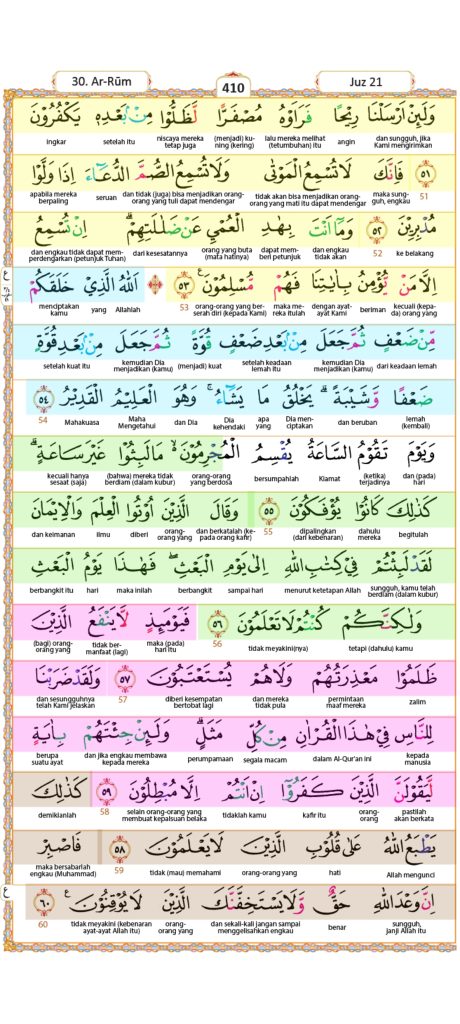 30. Ar-Rūm
410
Juz 21
وَلَىِٕنْ اَرْسَلْنَا رِيْحًا فَرَاَوْهُ مُصْفَرًّا لَّظَلُّوْا مِنْۢ بَعْدِهٖ يَكْفُرُوْنَ
dan sungguh, jika Kami mengirimkan angin lalu mereka melihat (tetumbuhan) itu (menjadi) kuning (kering) niscaya mereka tetap juga setelah itu ingkar
٥١ فَاِنَّكَ لَا تُسْمِعُ الْمَوْتٰى وَلَا تُسْمِعُ الصُّمَّ الدُّعَاۤءَ اِذَا وَلَّوْا
51 maka sungguh, engkau tidak akan bisa menjadikan orang-orang yang mati itu dapat mendengar dan tidak (juga) bisa menjadikan orang-orang yang tuli dapat mendengar seruan apabila mereka berpaling
مُدْبِرِيْنَ ٥٢ وَمَآ اَنْتَ بِهٰدِ الْعُمْيِ عَنْ ضَلٰلَتِهِمْۗ اِنْ تُسْمِعُ
ke belakang 52 dan engkau tidak akan dapat memberi petunjuk orang yang buta (mata hatinya) dari kesesatannya dan engkau tidak dapat memperdengarkan (petunjuk Tuhan)
اِلَّا مَنْ يُّؤْمِنُ بِاٰيٰتِنَا فَهُمْ مُّسْلِمُوْنَ ࣖ ٥٣ اَللّٰهُ الَّذِيْ خَلَقَكُمْ
kecuali (kepada) orang yang beriman dengan ayat-ayat Kami maka mereka itulah orang-orang yang berserah diri (kepada Kami) 53 Allahlah yang menciptakan kamu
مِّنْ ضَعْفٍ ثُمَّ جَعَلَ مِنْۢ بَعْدِ ضَعْفٍ قُوَّةً ثُمَّ جَعَلَ مِنْۢ بَعْدِ قُوَّةٍ
dari keadaan lemah kemudian Dia menjadikan (kamu) setelah keadaan lemah itu (menjadi) kuat kemudian Dia menjadikan (kamu) setelah kuat itu
ضَعْفًا وَّشَيْبَةًۗ يَخْلُقُ مَا يَشَاۤءُۚ وَهُوَ الْعَلِيْمُ الْقَدِيْرُ ٥٤
lemah (kembali) dan beruban Dia menciptakan apa yang Dia kehendaki dan Dia Maha Mengetahui Mahakuasa 54
وَيَوْمَ تَقُوْمُ السَّاعَةُ يُقْسِمُ الْمُجْرِمُوْنَ ەۙ مَا لَبِثُوْا غَيْرَ سَاعَةٍۗ
dan (pada) hari (ketika) terjadinya Kiamat bersumpahlah orang-orang yang berdosa (bahwa) mereka tidak berdiam (dalam kubur) kecuali hanya sesaat (saja)
كَذٰلِكَ كَانُوْا يُؤْفَكُوْنَ ٥٥ وَقَالَ الَّذِيْنَ اُوْتُوا الْعِلْمَ وَالْاِيْمَانَ
begitulah dahulu mereka dipalingkan (dari kebenaran) 55 dan berkatalah (kepada orang kafir) orang-orang yang diberi ilmu dan keimanan
لَقَدْ لَبِثْتُمْ فِيْ كِتٰبِ اللّٰهِ اِلٰى يَوْمِ الْبَعْثِۖ فَهٰذَا يَوْمُ الْبَعْثِ
sungguh, kamu telah berdiam (dalam kubur) menurut ketetapan Allah sampai hari berbangkit maka inilah hari berbangkit itu
وَلٰكِنَّكُمْ كُنْتُمْ لَا تَعْلَمُوْنَ ٥٦ فَيَوْمَىِٕذٍ لَّا يَنْفَعُ الَّذِيْنَ
tetapi (dahulu) kamu tidak meyakini(nya) 56 maka (pada) hari itu tidak bermanfaat (lagi) (bagi) orang-orang yang
ظَلَمُوْا مَعْذِرَتُهُمْ وَلَا هُمْ يُسْتَعْتَبُوْنَ ٥٧ وَلَقَدْ ضَرَبْنَا
zalim permintaan maaf mereka dan mereka tidak pula diberi kesempatan bertobat lagi 57 dan sesungguhnya telah Kami jelaskan
لِلنَّاسِ فِيْ هٰذَا الْقُرْاٰنِ مِنْ كُلِّ مَثَلٍۗ وَلَىِٕنْ جِئْتَهُمْ بِاٰيَةٍ
kepada manusia dalam Al-Qur'an ini segala macam perumpamaan dan jika engkau membawa kepada mereka berupa suatu ayat
لَّيَقُوْلَنَّ الَّذِيْنَ كَفَرُوْٓا اِنْ اَنْتُمْ اِلَّا مُبْطِلُوْنَ ٥٩ كَذٰلِكَ
pastilah akan berkata orang-orang kafir itu tidaklah kamu selain orang-orang yang membuat kepalsuan belaka 58 demikianlah
يَطْبَعُ اللّٰهُ عَلٰى قُلُوْبِ الَّذِيْنَ لَا يَعْلَمُوْنَ ٥٨ فَاصْبِرْ
Allah mengunci hati orang-orang yang tidak (mau) memahami 59 maka bersabarlah engkau (Muhammad)
اِنَّ وَعْدَ اللّٰهِ حَقٌّ وَّلَا يَسْتَخِفَّنَّكَ الَّذِيْنَ لَا يُوْقِنُوْنَ ࣖ ٦٠
sungguh, janji Allah itu benar dan sekali-kali jangan sampai menggelisahkan engkau orang-orang yang tidak meyakini (kebenaran ayat-ayat Allah itu) 60